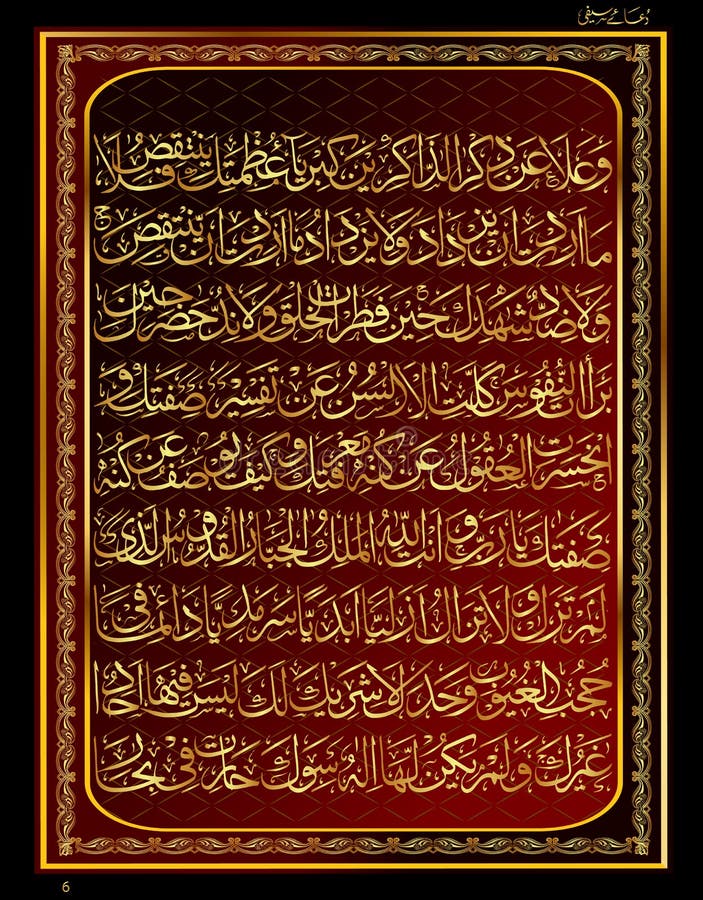 دُعائے سیفی
وَعَلَا عَنْ ذِكْرِ الذَّاكِرِيْنَ كِبْرِيَآءُ عَظْمَتِكَ فَلَا يَنْتَقِصُ
مَا اَرَدْتَ اَنْ يَّزْدَادَ وَلَا يَزْدَادُ مَا اَرَدْتَ اَنْ يَّنْتَقِصَ ج
وَلَا ضِدَّ شَهِدَكَ حِيْنَ فَطَرْتَ الْخَلْقَ وَلَا نِدَّ حَضَرَكَ حِيْنَ
بَرَأْتَ النُّفُوْسَ كَلَّتِ الْاَلْسُنُ عَنْ تَفْسِيْرِ صِفَتِكَ وَ
انْحَسَرَتِ الْعُقُوْلُ عَنْ كُنْهِ مَعْرِفَتِكَ وَكَيْفَ يُوْصَفُ عَنْ كُنْهِ
صِفَتِكَ يَارَبِّ وَ اَنْتَ اللّٰهُ الْمَلِكُ الْجَبَّارُ الْقُدُّوْسُ الَّذِىْ
لَمْ تَزَلْ وَلَا تَزَالُ اَزَلِيًّا اَبَدِيًّا سَرْمَدِيًّا دَائِمًا فِىْ
حُجُبِ الْغُيُوْبِ وَحْدَكَ لَاشَرِيْكَ لَكَ لَيْسَ فِيْهَا اَحَدٌ
غَيْرُكَ وَلَمْ يَكُنْ لَّهَا اِلٰهٌ سِوَاكَ حَارَتْ فِىْ بِحَارِ
6